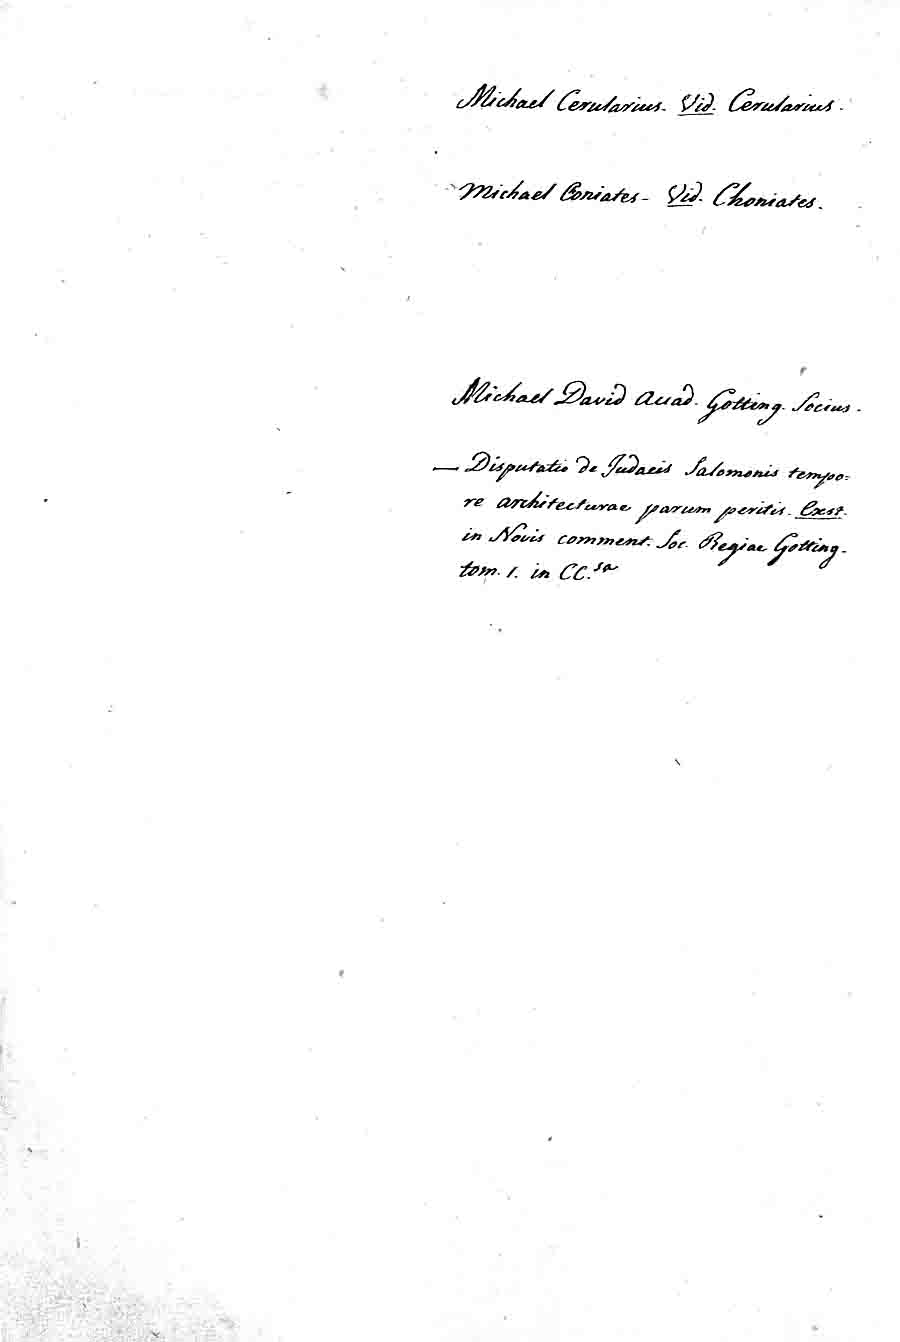 Michael Cerularius. Vid. Cerularius.
Michael Coniates. Vid. Choniates.
Michael David Acad. Gotting. Socius.
— Disputatio de Judaeis Salomonis tempo=
re architecturae parum peritis. Exst.
in Novis comment. Soc. Regiae Gotting.
tom. 1. in CC.sa